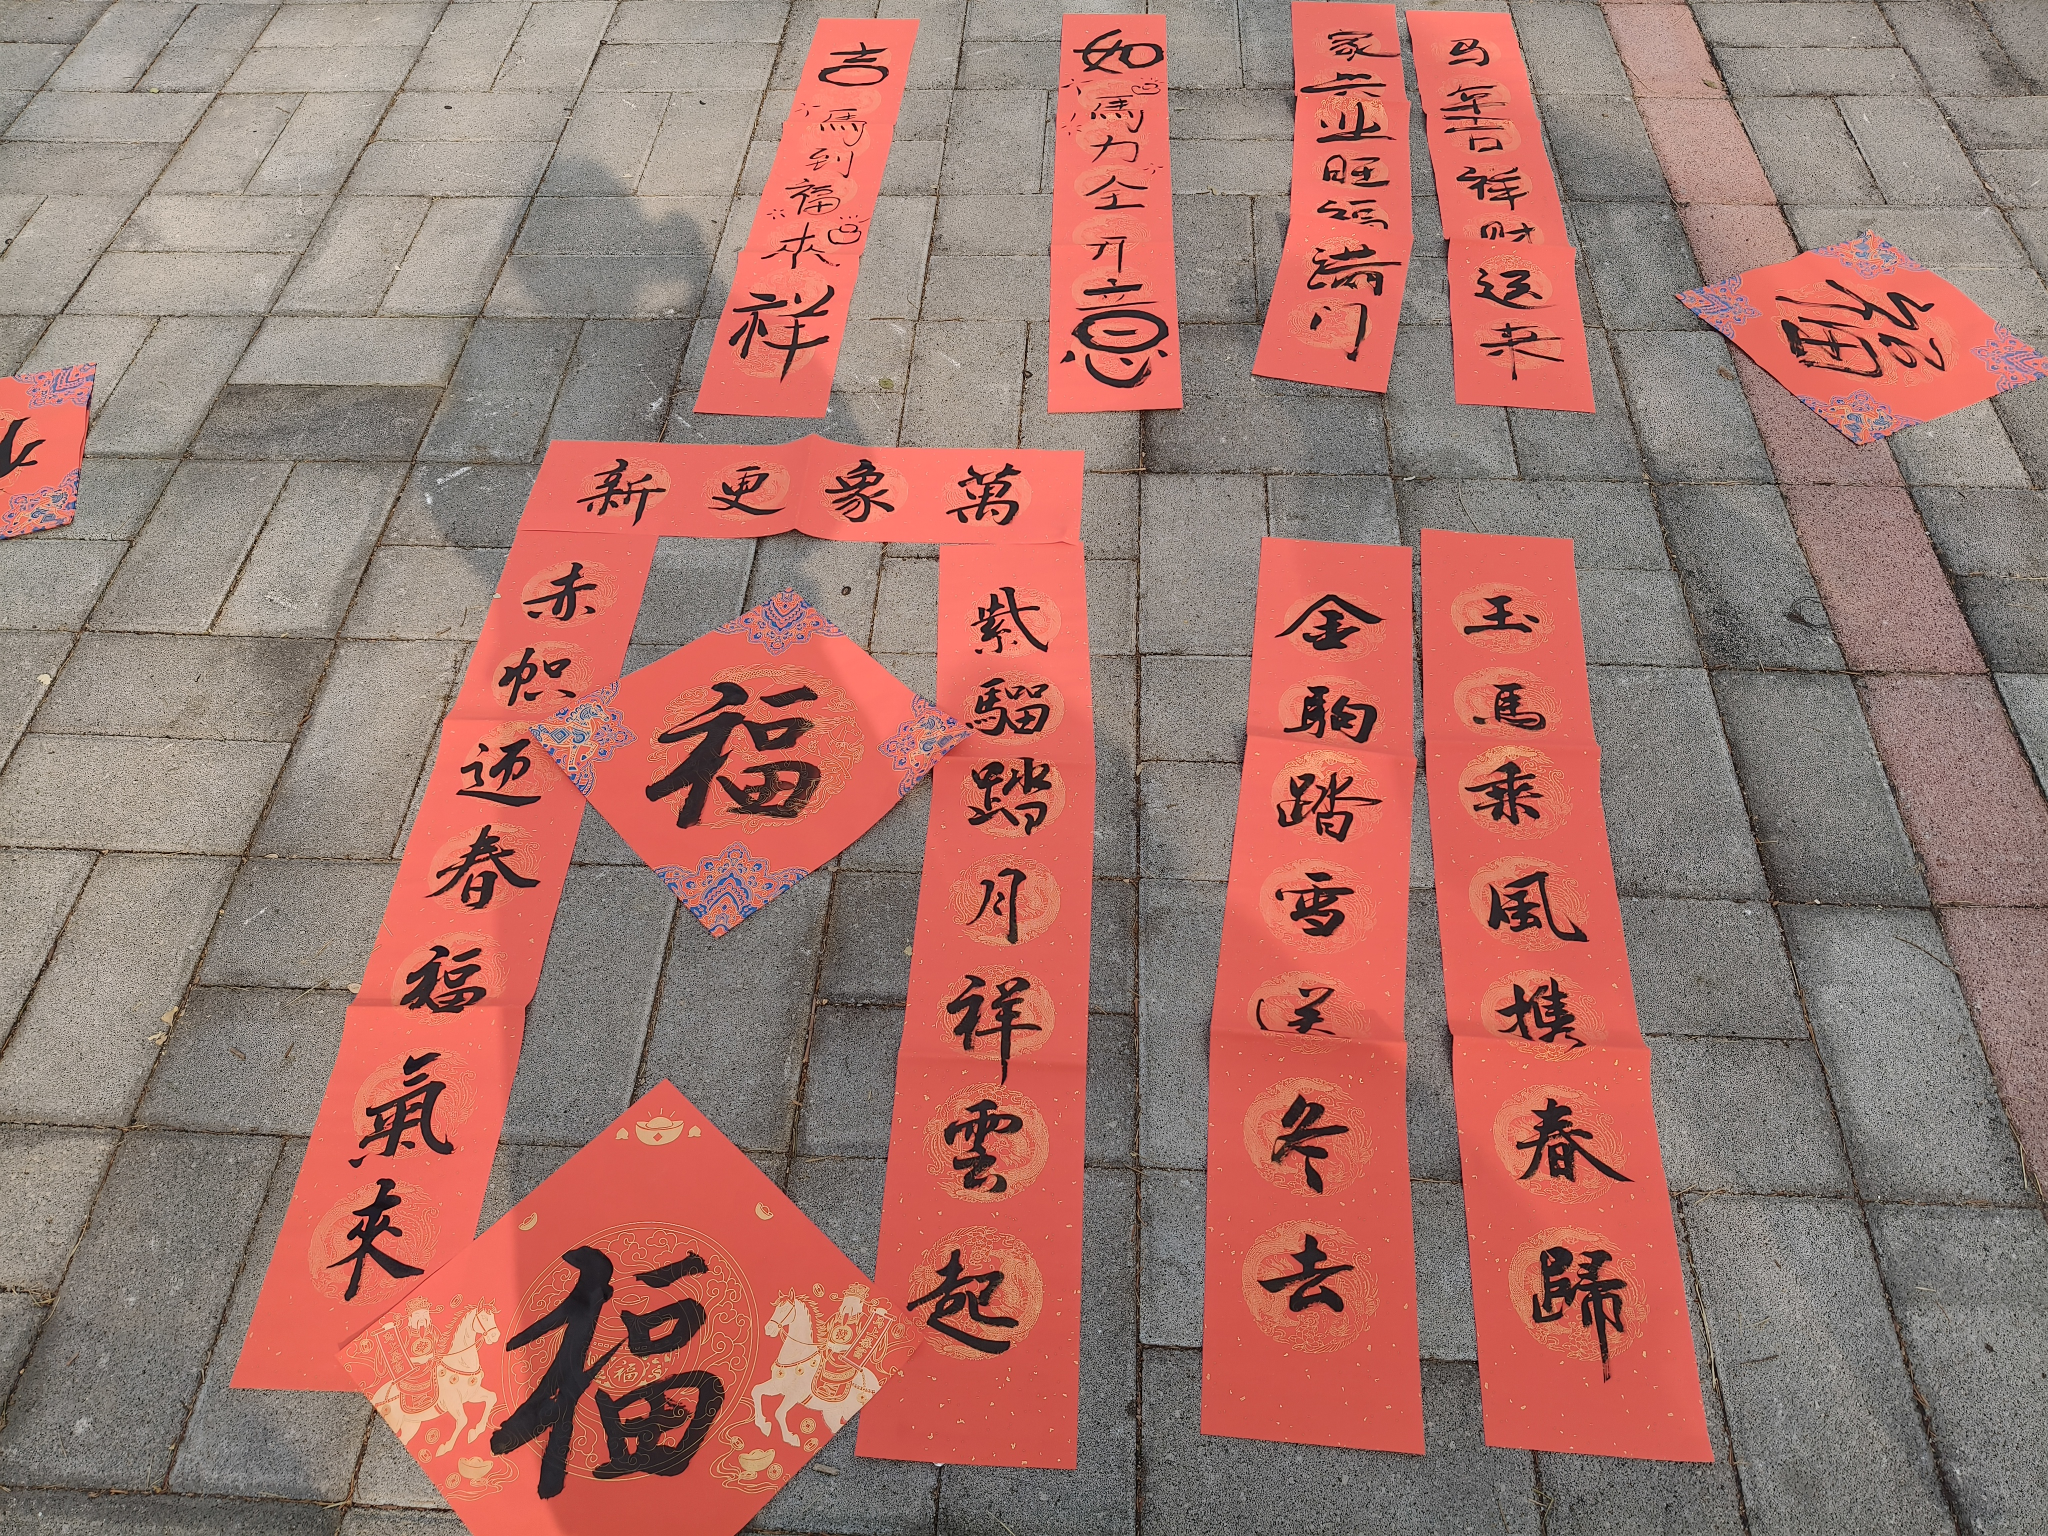 马年吉祥财运来
家兴业旺福满门
如馬力全开意
吉馬到福來祥
福
萬象更新
紫騮踏月祥雲起
赤帜迎春福氣來
福
福
玉馬乘風携春歸
金駒踏雪送冬去